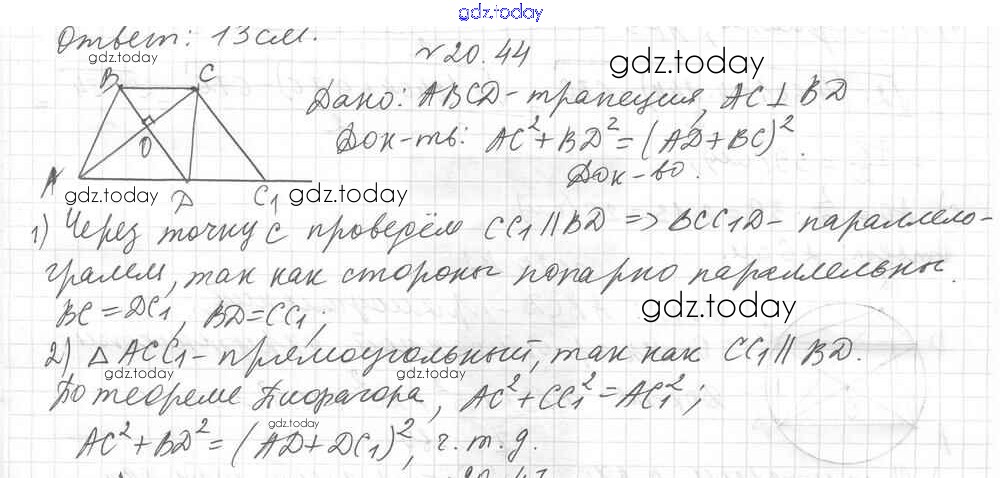 gdz.today
Ответ: 13 см.
gdz.today
№ 20.44
gdz.today
B C
Дано: ABCD - трапеция, AC ⊥ BD
Док-ть: AC² + BD² = (AD + BC)².
O
Док-во.
A D C₁
gdz.today
gdz.today
1) Через точку C проведём CC₁ || BD => BCC₁D - параллело-
грамм, так как стороны попарно параллельны.
BC = DC₁, BD = CC₁;
gdz.today
2) △ ACC₁ - прямоугольный, так как CC₁ || BD.
gdz.today
gdz.today
По теореме Пифагора, AC² + CC₁² = AC₁²;
gdz.today
AC² + BD² = (AD + DC₁)², ч.т.д.